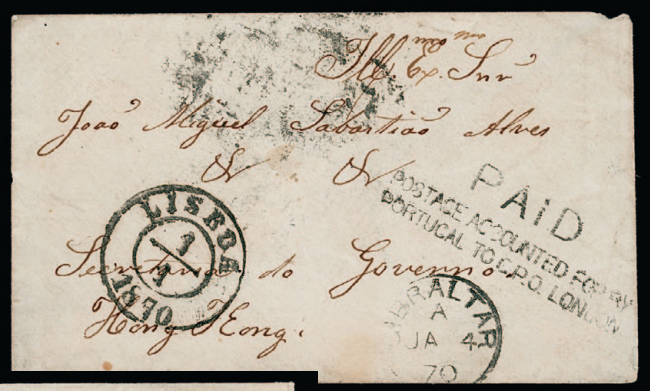 Ill. Ex. Snr
João Miguel Sabastião Alves
PAiD
POSTAGE ACCOUNTED FOR BY
PORTUGAL TO G.P.O. LONDON
LISBOA
1
1
1870
Secretaria do Governo
Hong Kong.
GIBRALTAR
A
JA 4
70